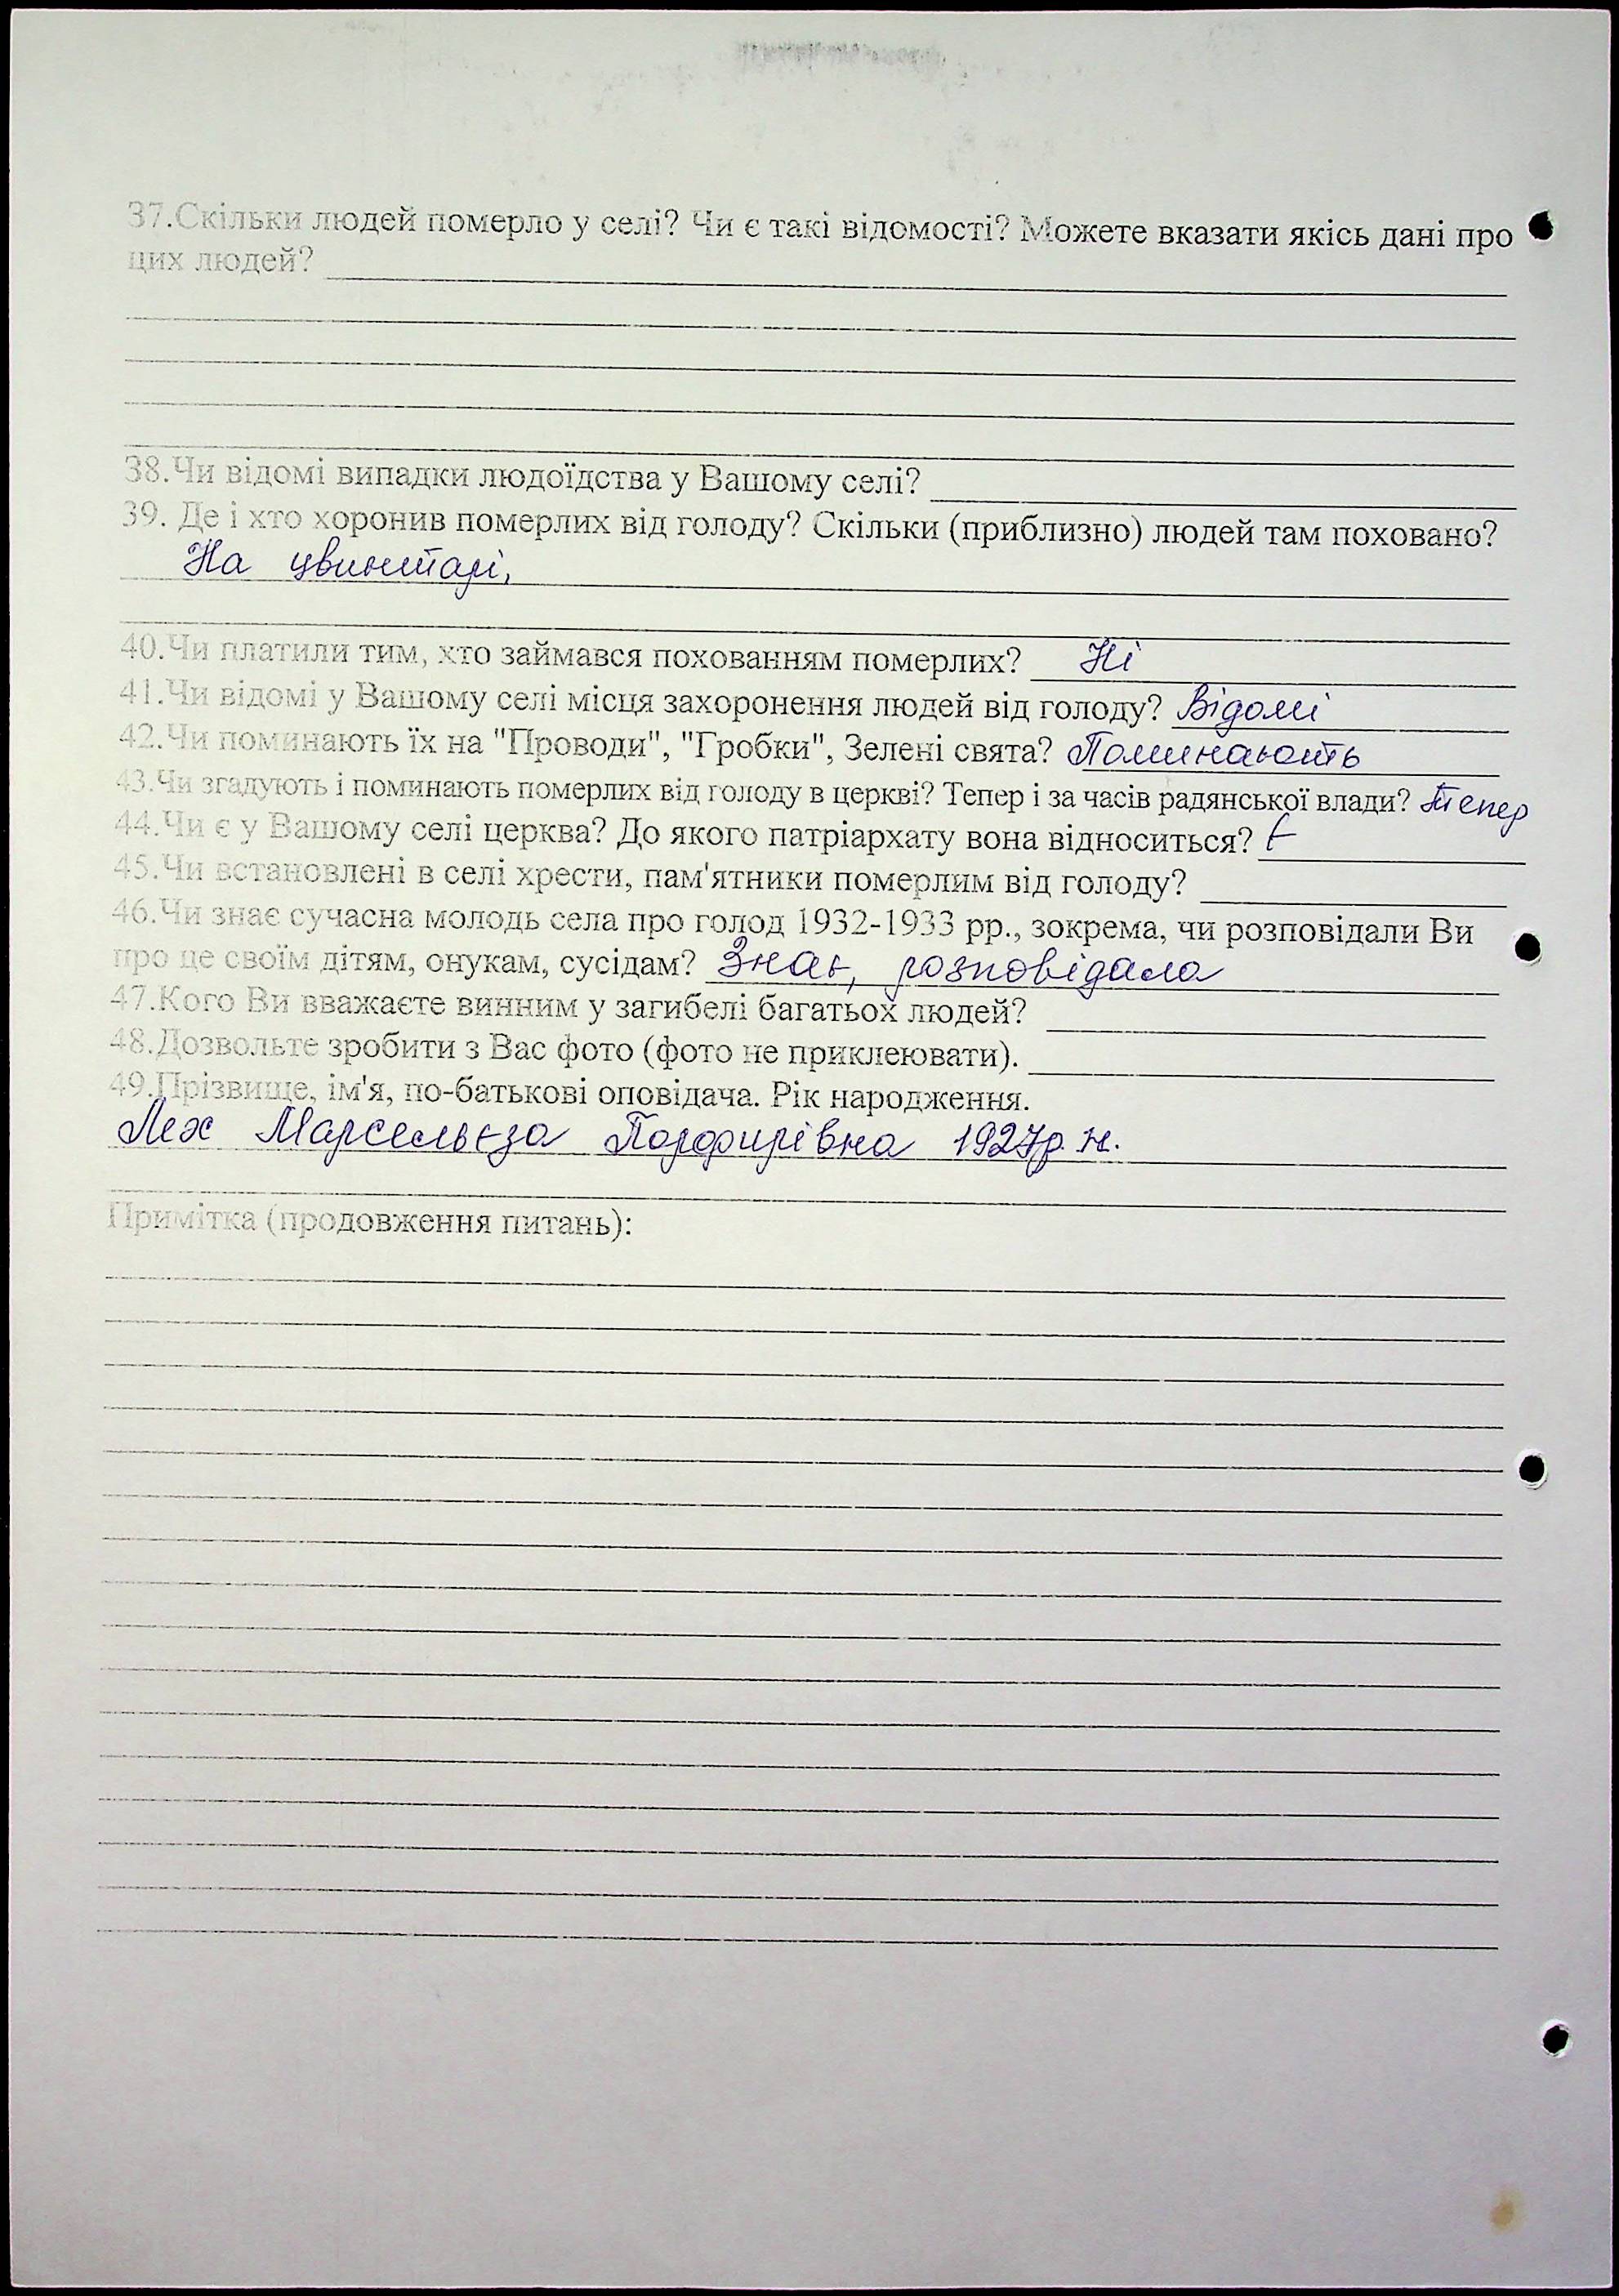 37.Скільки людей померло у селі? Чи є такі відомості? Можете вказати якісь дані про
цих людей?
38.Чи відомі випадки людоїдства у Вашому селі?
39. Де і хто хоронив померлих від голоду? Скільки (приблизно) людей там поховано?
На цвинтарі,
40.Чи платили тим, хто займався похованням померлих? Ні
41.Чи відомі у Вашому селі місця захоронення людей від голоду? Відомі
42.Чи поминають їх на "Проводи", "Гробки", Зелені свята? Поминають
43.Чи згадують і поминають померлих від голоду в церкві? Тепер і за часів радянської влади? Тепер
44.Чи є у Вашому селі церква? До якого патріархату вона відноситься? Є
45.Чи встановлені в селі хрести, пам'ятники померлим від голоду?
46.Чи знає сучасна молодь села про голод 1932-1933 рр., зокрема, чи розповідали Ви
про це своїм дітям, онукам, сусідам? Знає, розповідала
47.Кого Ви вважаєте винним у загибелі багатьох людей?
48.Дозвольте зробити з Вас фото (фото не приклеювати).
49.Прізвище, ім'я, по-батькові оповідача. Рік народження.
Лех Марсельєза Порфирівна 1927р.н.
Примітка (продовження питань):